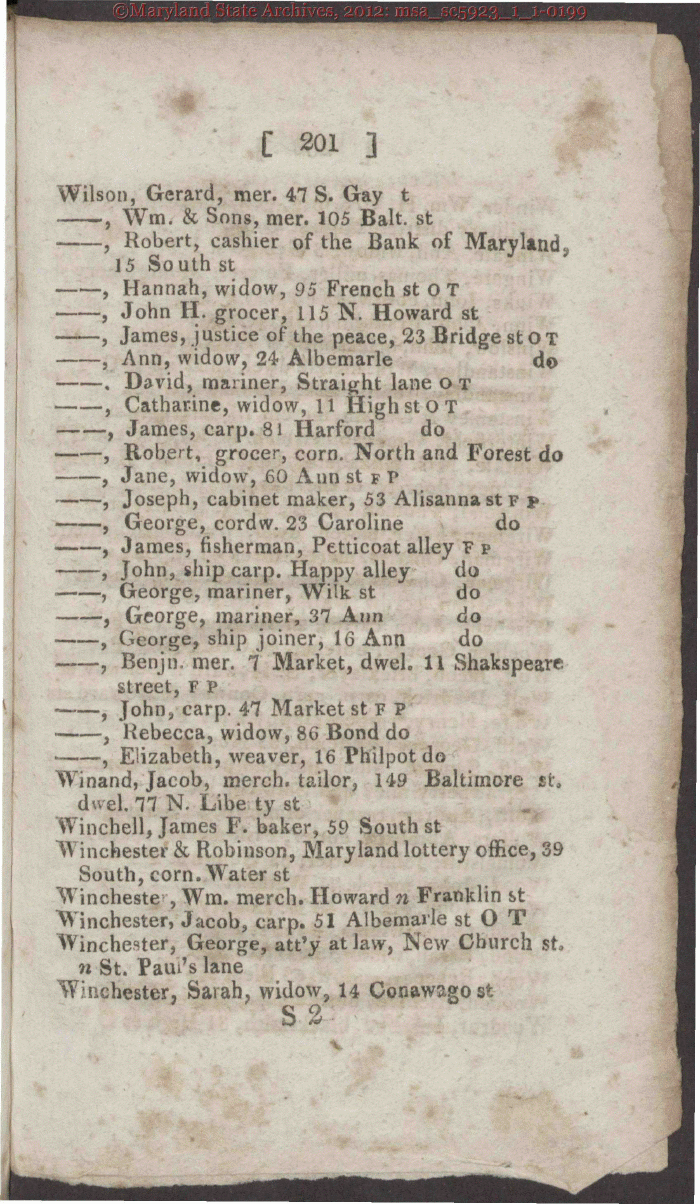 ©Maryland State Archives, 2012: msa_sc5923_1_1-0199
[ 201 ]
Wilson, Gerard, mer. 47 S. Gay t
——, Wm. & Sons, mer. 105 Balt. st
——, Robert, cashier of the Bank of Maryland,
15 South st
——, Hannah, widow, 95 French st O T
——, John H. grocer, 115 N. Howard st
——, James, justice of the peace, 23 Bridge st O T
——, Ann, widow, 24 Albemarle do
——. David, mariner, Straight lane O T
——, Catharine, widow, 11 High st O T
——, James, carp. 81 Harford do
——, Robert, grocer, corn. North and Forest do
——, Jane, widow, 60 Ann st F P
——, Joseph, cabinet maker, 53 Alisanna st F P
——, George, cordw. 23 Caroline do
——, James, fisherman, Petticoat alley F P
——, John, ship carp. Happy alley do
——, George, mariner, Wilk st do
——, George, mariner, 37 Ann do
——, George, ship joiner, 16 Ann do
——, Benjn. mer. 7 Market, dwel. 11 Shakspeare
street, F P
——, John, carp. 47 Market st F P
——, Rebecca, widow, 86 Bond do
——, Elizabeth, weaver, 16 Philpot do
Winand, Jacob, merch. tailor, 149 Baltimore st.
dwel. 77 N. Libe ty st
Winchell, James F. baker, 59 South st
Winchester & Robinson, Maryland lottery office, 39
South, corn. Water st
Winchester, Wm. merch. Howard n Franklin st
Winchester, Jacob, carp. 51 Albemarle st O T
Winchester, George, att'y at law, New Church st.
n St. Paul's lane
Winchester, Sarah, widow, 14 Conawago st
S 2